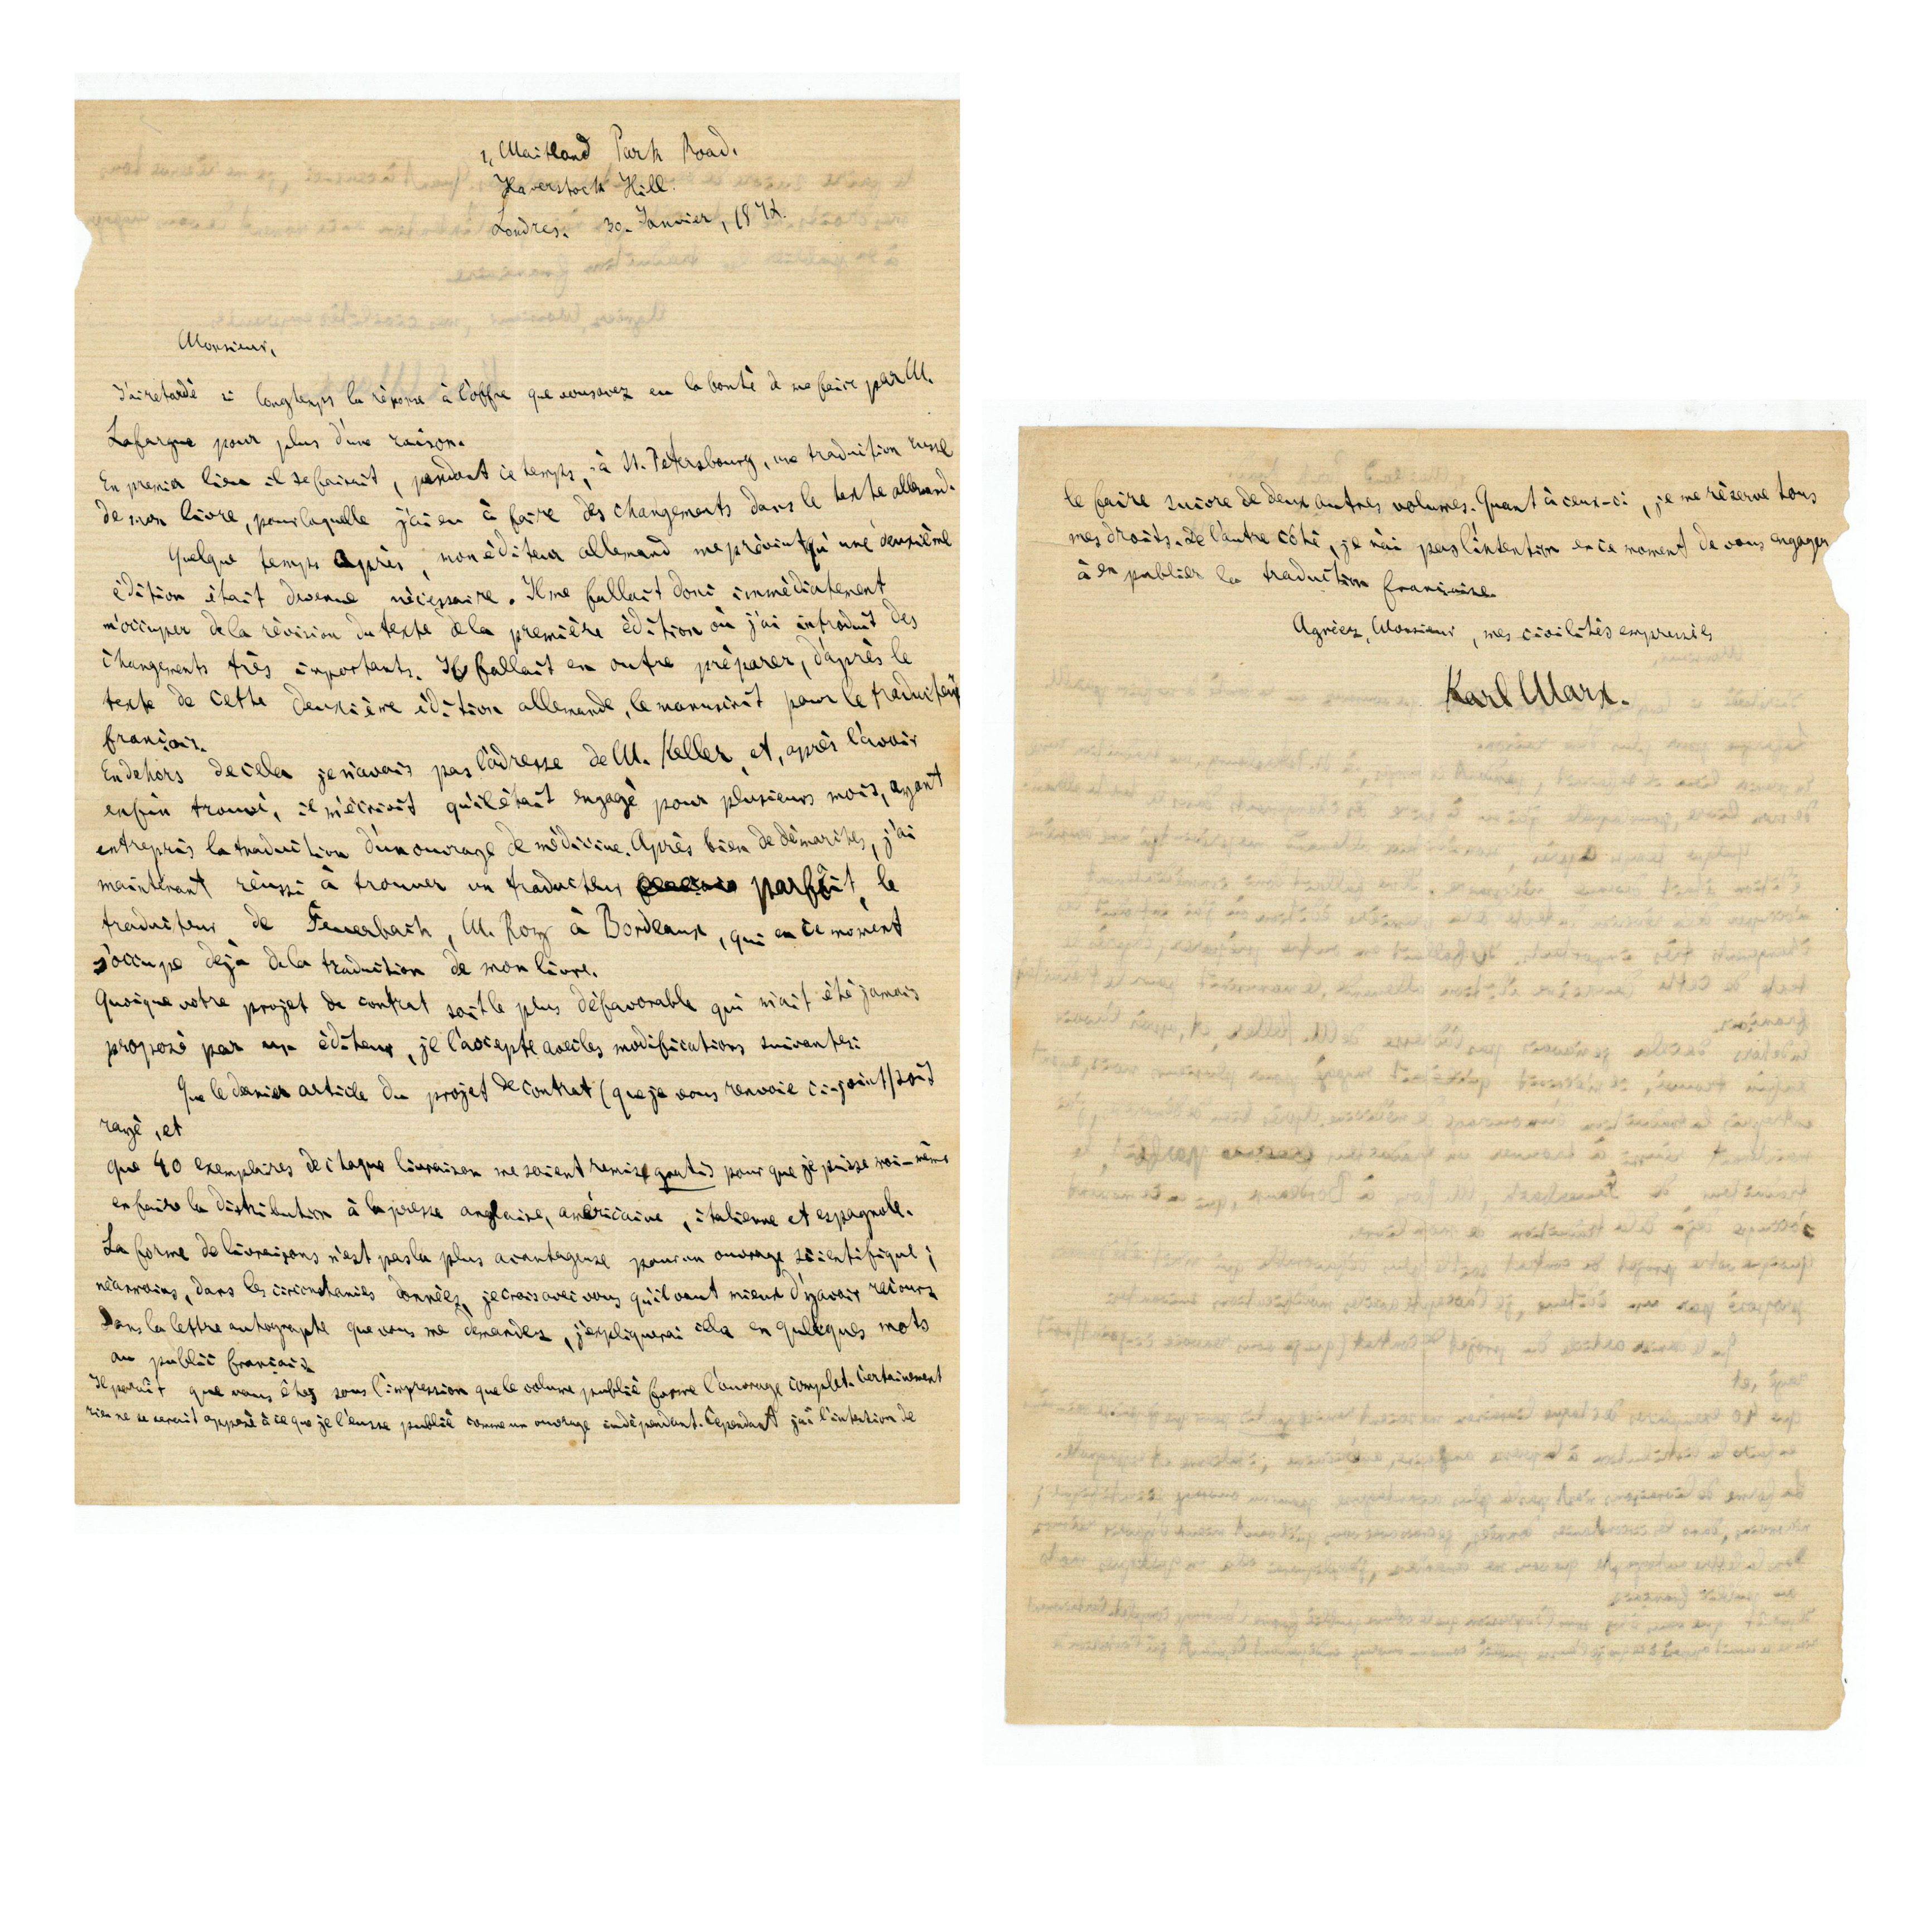 1, Maitland Park Road.
Haverstock Hill.
Londres. 30. Janvier, 1872.
Monsieur,
J'ai retardé si longtemps la réponse à l'offre que vous avez eu la bonté de me faire par M.
Lafargue pour plus d'une raison.
En premier lieu il se faisait, pendant ce temps, à St. Petersbourg, une traduction russe
de mon livre, pour laquelle j'ai eu à faire des changements dans le texte allemand.
Quelque temps après, mon éditeur allemand me prévint qu'une deuxième
édition était devenue nécessaire. Il me fallait donc immédiatement
m'occuper de la révision du texte de la première édition où j'ai introduit des
changements très importants. Il fallait en outre préparer, d'après le
texte de cette deuxième édition allemande, le manuscrit pour le traducteur
français.
En dehors de cela je n'avais pas l'adresse de M. Keller, et, après l'avoir
enfin trouvé, il m'écrivit qu'il était engagé pour plusieurs mois, ayant
entrepris la traduction d'un ouvrage de médicine. Après bien de démarches, j'ai
maintenant réussi à trouver un traducteur parfait, le
traducteur de Feuerbach, M. Roy à Bordeaux, qui en ce moment
s'occupe dejà de la traduction de mon livre.
Quoique votre projet de contrat soit le plus défavorable qui m'ait été jamais
proposé par un éditeur, je l'accepte avec les modifications suivantes:
Que le dernier article du projet de contrat (que je vous renvoie ci-joint) soit
rayé, et
que 40 exemplaires de chaque livraison me soient remise gratis pour que je puisse moi-même
en faire la distribution à la presse anglaise, américaine, italienne et espagnole.
La forme de livraisons n'est pas la plus avantageuse pour un ouvrage scientifique;
néanmoins, dans les circonstances données, je crois avec vous qu'il vaut mieux d'y avoir recours
Dans la lettre autographe que vous me demandez, j'expliquerai cela en quelques mots
au public français
Il paraît que vous êtes sous l'impression que le volume publié forme l'ouvrage complet. Certainement
rien ne se serait opposé à ce que je l'eusse publié comme un ouvrage indépendant. Cependant j'ai l'intention de
le faire suivre de deux autres volumes. Quant à ceux-ci, je me réserve tous
mes droits. De l'autre côté, je n'ai pas l'intention en ce moment de vous engager
à en publier la traduction française.
Agréez, Monsieur, mes civilités empressées
Karl Marx.